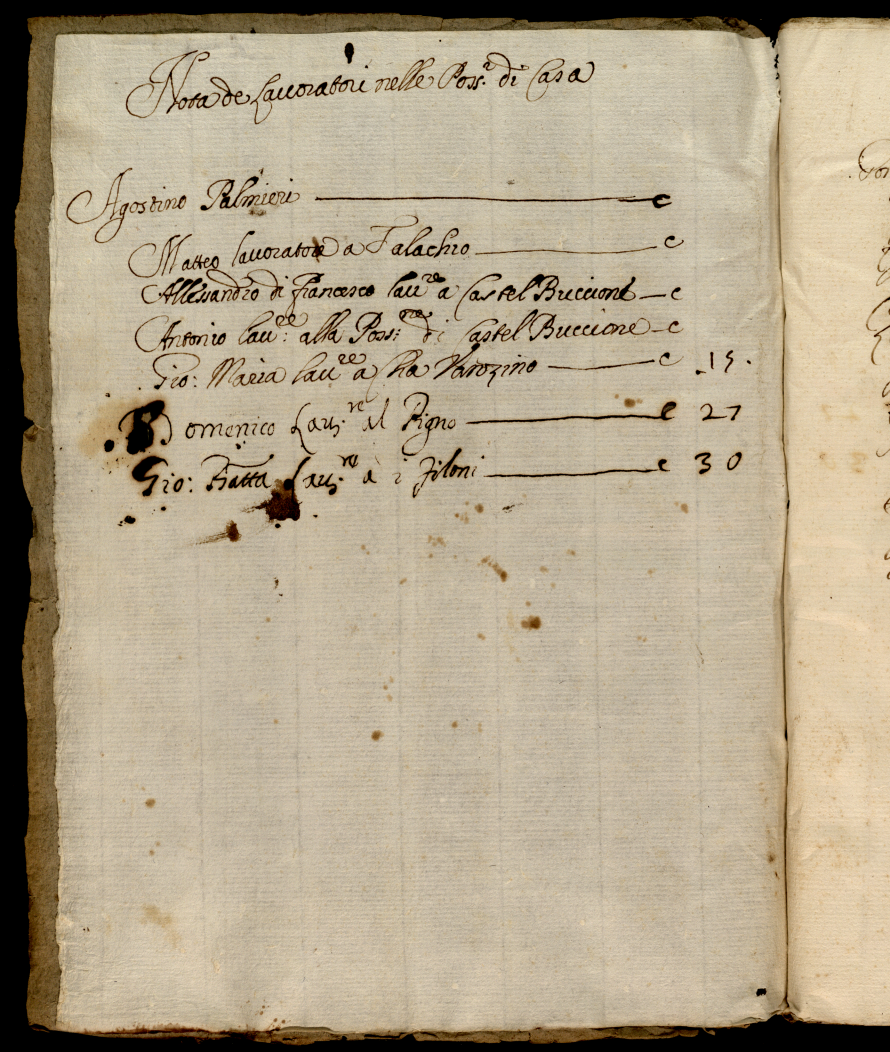 Nota de Lauoratori nelle Poss.i di Casa
Agostino Palmieri — c
Matteo lauoratore a Talachio — c
Allessandro di francesco lau.re a Castel Buccione — c
Antonio lau.re alla Poss:ne di Castel Buccione — c
Gio: Maria lau.re a Cha Varozino — c 15.
Domenico Lau.re al Pigno — c 27
Gio: Piatta Lau.re a i Ziloni — c 30